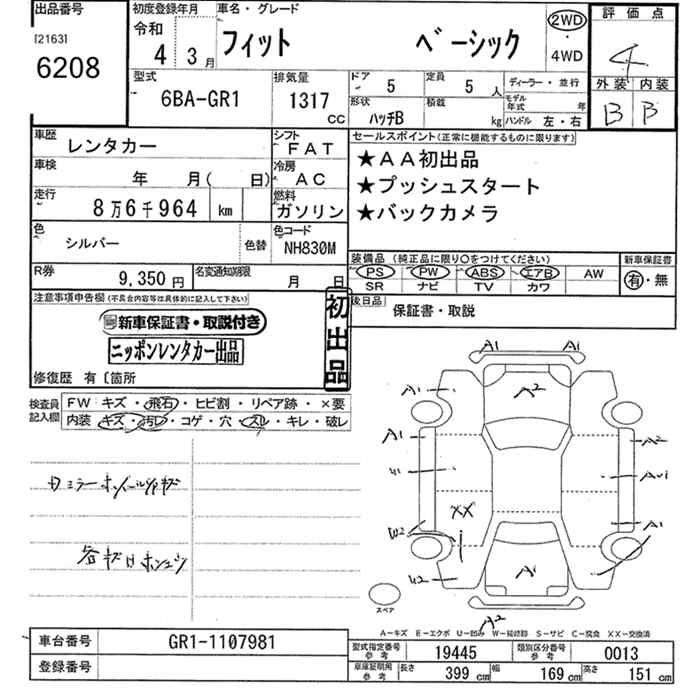 出品番号
[2163]
6208
初度登録年月
令和
4年 3月
車名・グレード
フィット ベーシック
2WD
4WD
評価点
4
外装 内装
B B
型式
6BA-GR1
排気量
1317
CC
ドア
5
定員
5人
ディーラー・並行
形状
ハッチB
積載
kg
モデル年式
年
ハンドル 左・右
車歴
レンタカー
シフト
FAT
車検
年 月( 日)
冷房
AC
走行
8万6千964 km
燃料
ガソリン
色
シルバー
色替
色コード
NH830M
R券
9,350円
名変通知期限
月 日
セールスポイント(正常に機能するものに限ります)
★AA初出品
★プッシュスタート
★バックカメラ
装備品(純正品に限り○をつけてください)
PS PW ABS エアB AW
SR ナビ TV カワ
新車保証書
有・無
後日品
保証書・取説
注意事項申告欄(不具合内容等は具体的に記入して下さい)
新車保証書・取説付き
ニッポンレンタカー出品
修復歴 有〔箇所
初出品
検査員記入欄
FW キズ・飛石・ヒビ割・リペア跡・×要
内装 キズ・汚レ・コゲ・穴・スレ・キレ・破レ
A1 A1
A2
A1
A1 A2
U1
XX
A1
W2
U2
A1
A2
スペア
A-キズ E-エクボ U-凹み W-補修跡 S-サビ C-腐食 XX-交換済
車台番号
GR1-1107981
登録番号
型式指定番号
参考
19445
類別区分番号
参考
0013
車庫証明用
参考
長さ 399 cm 幅 169 cm 高さ 151 cm